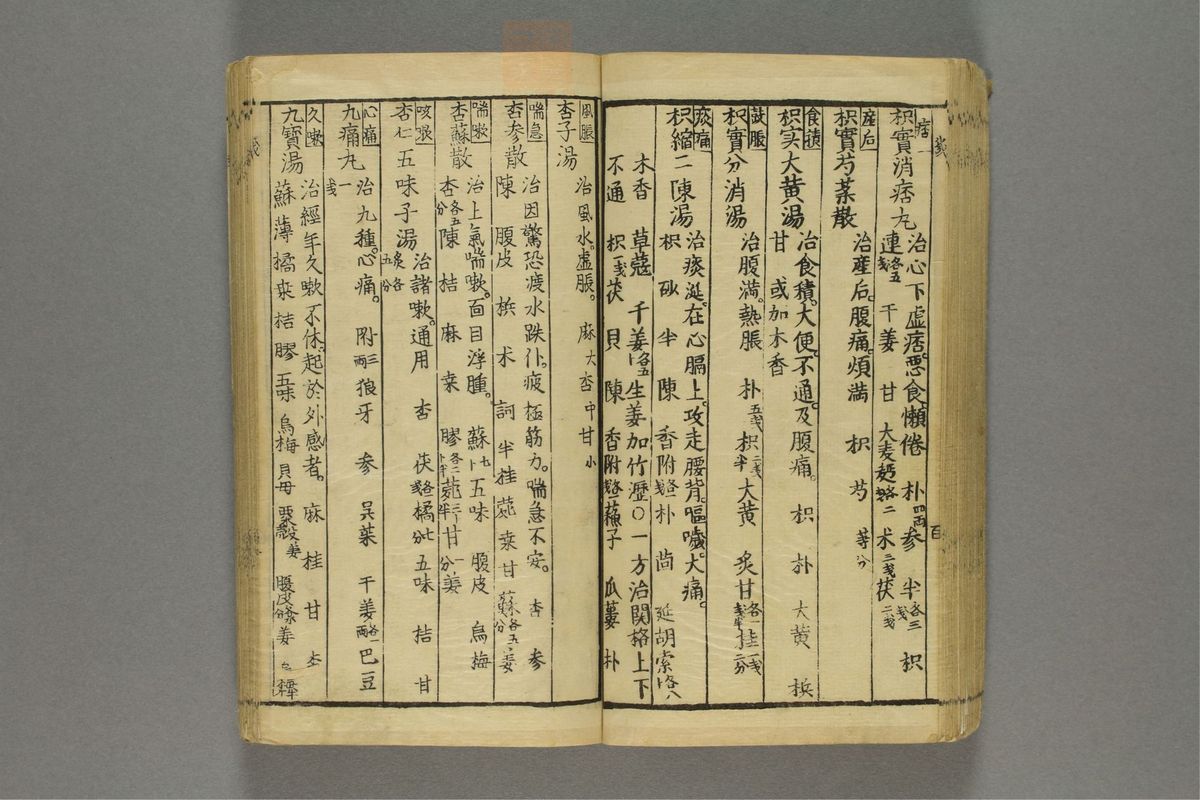 痞一
枳實消痞丸 治心下虛痞。惡食懶倦 朴四両 参 半各三戔 枳
連各五戔 干姜 甘 大麦麹各二 术三戔 茯二戔
産后
枳實芍薬散 治産后。腹痛。煩満 枳 芍 等分
食積
枳实大黄湯 治食積。大便。不通。及腹痛。 枳 朴 大黄 梹
甘 或加木香
鼓脹
枳實分消湯 治腹満。熱脹 朴五戔 枳二戔半 大黄 炙甘各一戔半 桂一戔二分
痰痛
枳縮二陳湯 治痰涎。在心膈上。攻走腰背。嘔噦。大痛。
枳 砂 半 陳 香附各一戔 朴 茴 延胡索各八卜
木香 草蔻 干姜各五卜 生姜加竹瀝〇一方治関格上下
不通 枳一戔 茯 貝 陳 香附各一戔 蘓子 瓜蔞 朴
風脹
杏子湯 治風水。虛脹。 麻大 杏中 甘小
喘急
杏参散 治因驚恐渡水跌仆。疲極筋力。喘急不安。 杏 参
陳 腹皮 梹 术 訶 半 桂 菀 桒 甘 蘇各五分 姜
喘嗽
杏蘇散 治上氣喘嗽。面目浮腫。 蘇七卜 五味 腹皮 烏梅
杏各五分 陳 桔 麻 桒 膠各二卜半 菀三卜半 甘一分 姜
咳嗽
杏仁五味子湯 治諸嗽。通用 杏 茯各一戔 橘七分 五味 桔 甘炙各五分
心痛
九痛丸 治九種。心痛。 附三両 狼牙 参 呉茱 干姜各一両 巴豆一戔
久嗽
九寳湯 治經年久嗽不休。起於外感者。 麻 桂 甘 杏
蘇 薄 橘 桒 桔 膠 五味 烏梅 貝母 粟殼 姜 腹皮 姜